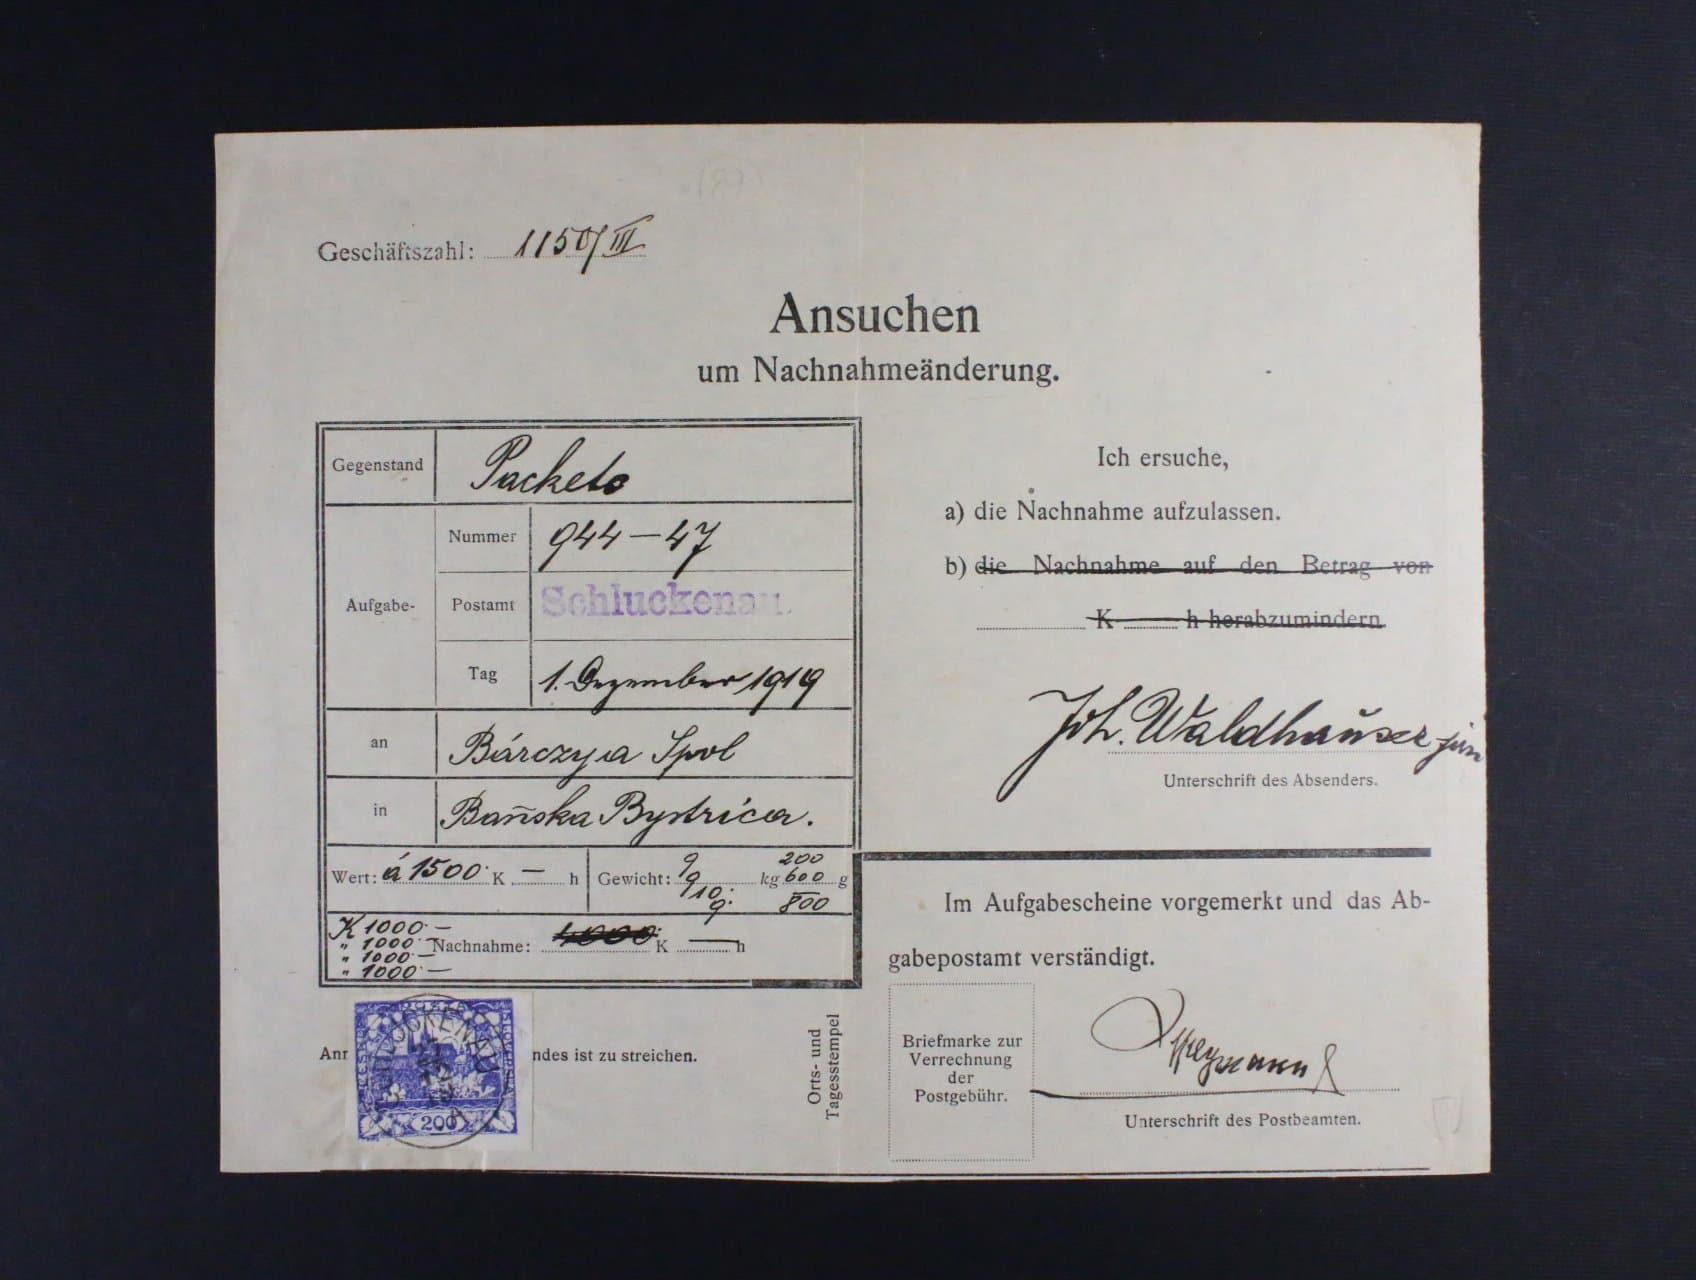 Geschäftszahl: 1150/III
Ansuchen
um Nachnahmeänderung.
Gegenstand Packete
Aufgabe-
Nummer 944-47
Postamt Schluckenau.
Tag 1. Dezember 1919
an Bárczy a Spol
in Bañska Bystrica.
Wert: á 1500 K — h Gewicht: 9 9 10 9 kg 200 600 800 g
K 1000·—
" 1000·—
" 1000·—
" 1000·—
Nachnahme: 4000 K — h
Ich ersuche,
a) die Nachnahme aufzulassen.
b) die Nachnahme auf den Betrag von
K h herabzumindern.
Joh. Waldhauser jun
Unterschrift des Absenders.
Im Aufgabescheine vorgemerkt und das Ab-
gabepostamt verständigt.
Briefmarke zur
Verrechnung
der
Postgebühr.
Unterschrift des Postbeamten.
Orts- und
Tagesstempel
Anr
ndes ist zu streichen.
200